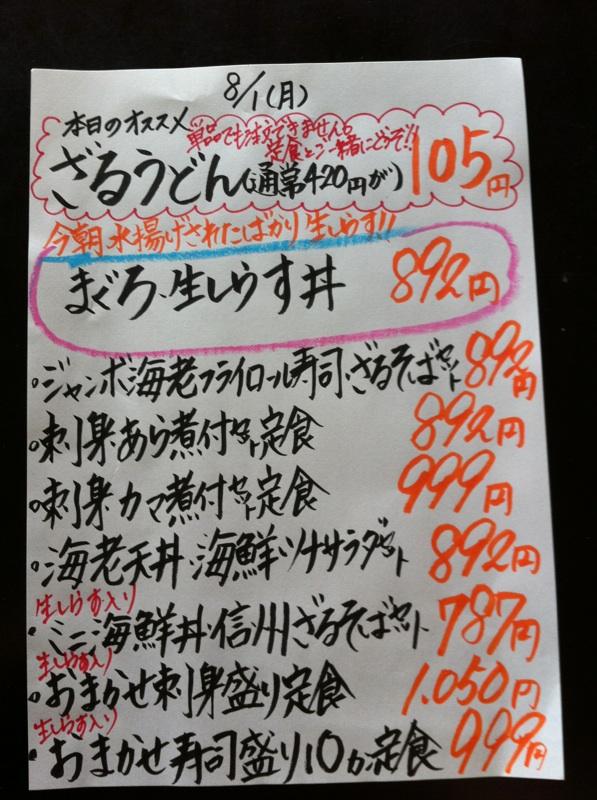 8/1(月)
本日のオススメ
単品でも注文できません。
定食とご一緒にどうぞ!!
ざるうどん(通常420円が)105円
今朝水揚げされたばかり生しらす!!
まぐろ・生しらす丼 892円
・ジャンボ海老フライロール寿司・ざるそばセット 892円
・刺身・あら煮付セット定食 892円
・刺身・カマ煮付セット定食 999円
・海老天丼・海鮮ツナサラダセット 892円
生しらす入り
・ミニ海鮮丼・信州ざるそばセット 787円
生しらす入り
・おまかせ刺身盛り定食 1.050円
生しらす入り
・おまかせ寿司盛り10カン定食 999円